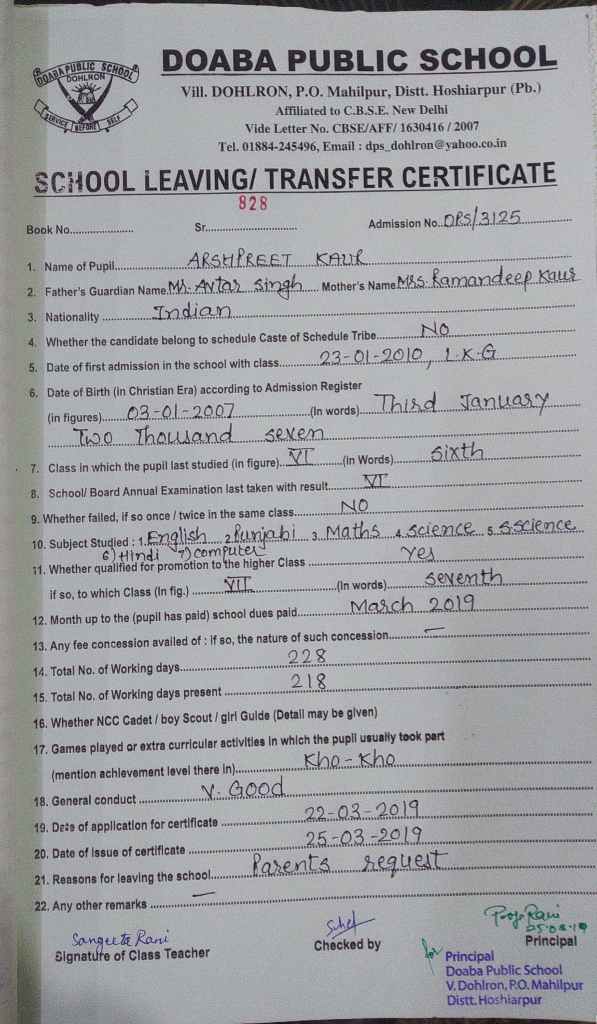 DOABA PUBLIC SCHOOL
DOHLRON
SERVICE BEFORE SELF
DOABA PUBLIC SCHOOL
Vill. DOHLRON, P.O. Mahilpur, Distt. Hoshiarpur (Pb.)
Affiliated to C.B.S.E. New Delhi
Vide Letter No. CBSE/AFF/ 1630416 / 2007
Tel. 01884-245496, Email : dps_dohlron@yahoo.co.in
SCHOOL LEAVING/ TRANSFER CERTIFICATE
828
Book No..................... Sr............................. Admission No. DPS/3125
1. Name of Pupil ARSHPREET KAUR
2. Father's Guardian Name Mr. Avtar Singh Mother's Name Mrs. Ramandeep Kaur
3. Nationality Indian
4. Whether the candidate belong to schedule Caste of Schedule Tribe NO
5. Date of first admission in the school with class 23-01-2010, L.K.G
6. Date of Birth (in Christian Era) according to Admission Register
(in figures) 03-01-2007 (In words) Third January
Two Thousand seven
7. Class in which the pupil last studied (in figure) VI (in Words) Sixth
8. School/ Board Annual Examination last taken with result VI
9. Whether failed, if so once / twice in the same class NO
10. Subject Studied : 1. English 2. Punjabi 3. Maths 4. Science 5. S.Science
6) Hindi 7) Computer
11. Whether qualified for promotion to the higher Class Yes
if so, to which Class (In fig.) VII (In words) Seventh
12. Month up to the (pupil has paid) school dues paid March 2019
13. Any fee concession availed of : if so, the nature of such concession —
14. Total No. of Working days 228
15. Total No. of Working days present 218
16. Whether NCC Cadet / boy Scout / girl Guide (Detail may be given)
17. Games played or extra curricular activities in which the pupil usually took part
(mention achievement level there in) Kho-Kho
18. General conduct V. Good
19. Date of application for certificate 22-03-2019
20. Date of Issue of certificate 25-03-2019
21. Reasons for leaving the school Parents request
22. Any other remarks —
Sangeeta Rani
Signature of Class Teacher
Checked by
Rani
Principal
for
Principal
Doaba Public School
V. Dohlron, P.O. Mahilpur
Distt. Hoshiarpur